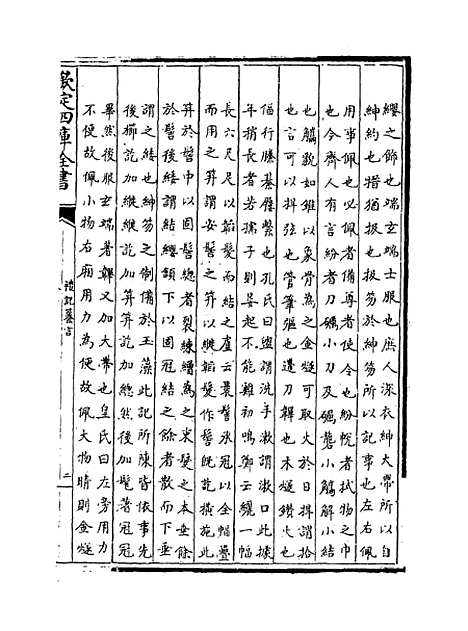 纓之飾也端玄端士服也庶人深衣紳大帶所以自
紳約也搢猶扱也扱笏於紳笏所以記事也左右佩
用事佩也必佩者備尊者使令也紛帨者拭物之巾
也今齊人有言紛者刀礪小刀及礪礱小觽解小結
也觽貌如錐以象骨為之金燧可取火於日捍謂拾
也言可以捍弦也管筆彄也遰刀鞞也木燧鑽火也
偪行縢綦屨繫也孔氏曰盥謂洗手漱謂漱口此據
年稍長者若孺子則晏起不能雞初鳴鄭云纚一幅
長六尺足以韜髮而結之盧云裹髻承冠以全幅疊
而用之笄謂安髻之笄以縰韜髮作髻既訖橫施此
笄於髻中以固髻總者裂練繒為之束髮之本垂餘
於髻後緌謂結纓頷下以固冠結之餘者散而下垂
謂之緌也紳笏之制備於玉藻此記所陳皆依事先
後櫛訖加縰縰訖加笄笄訖加總然後加髦著冠冠
畢然後服玄端著韠又加大帶也皇氏曰左旁用力
不便故佩小物右廂用力為便故佩大物晴則金燧
欽定四庫全書
禮記纂言
二